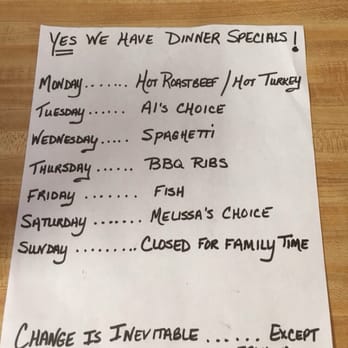 YES WE HAVE DINNER SPECIALS!
MONDAY....... HOT ROASTBEEF / HOT TURKEY
TUESDAY...... Al'S CHOICE
WEDNESDAY..... SPAGHETTi
THURSDAY ...... BBQ RIBS
FRIDAY ....... FISH
SATURDAY ....... MELISSA'S CHOICE
SUNDAY ......... CLOSED FOR FAMILY TIME
CHANGE IS INEVITABLE ...... EXCEPT